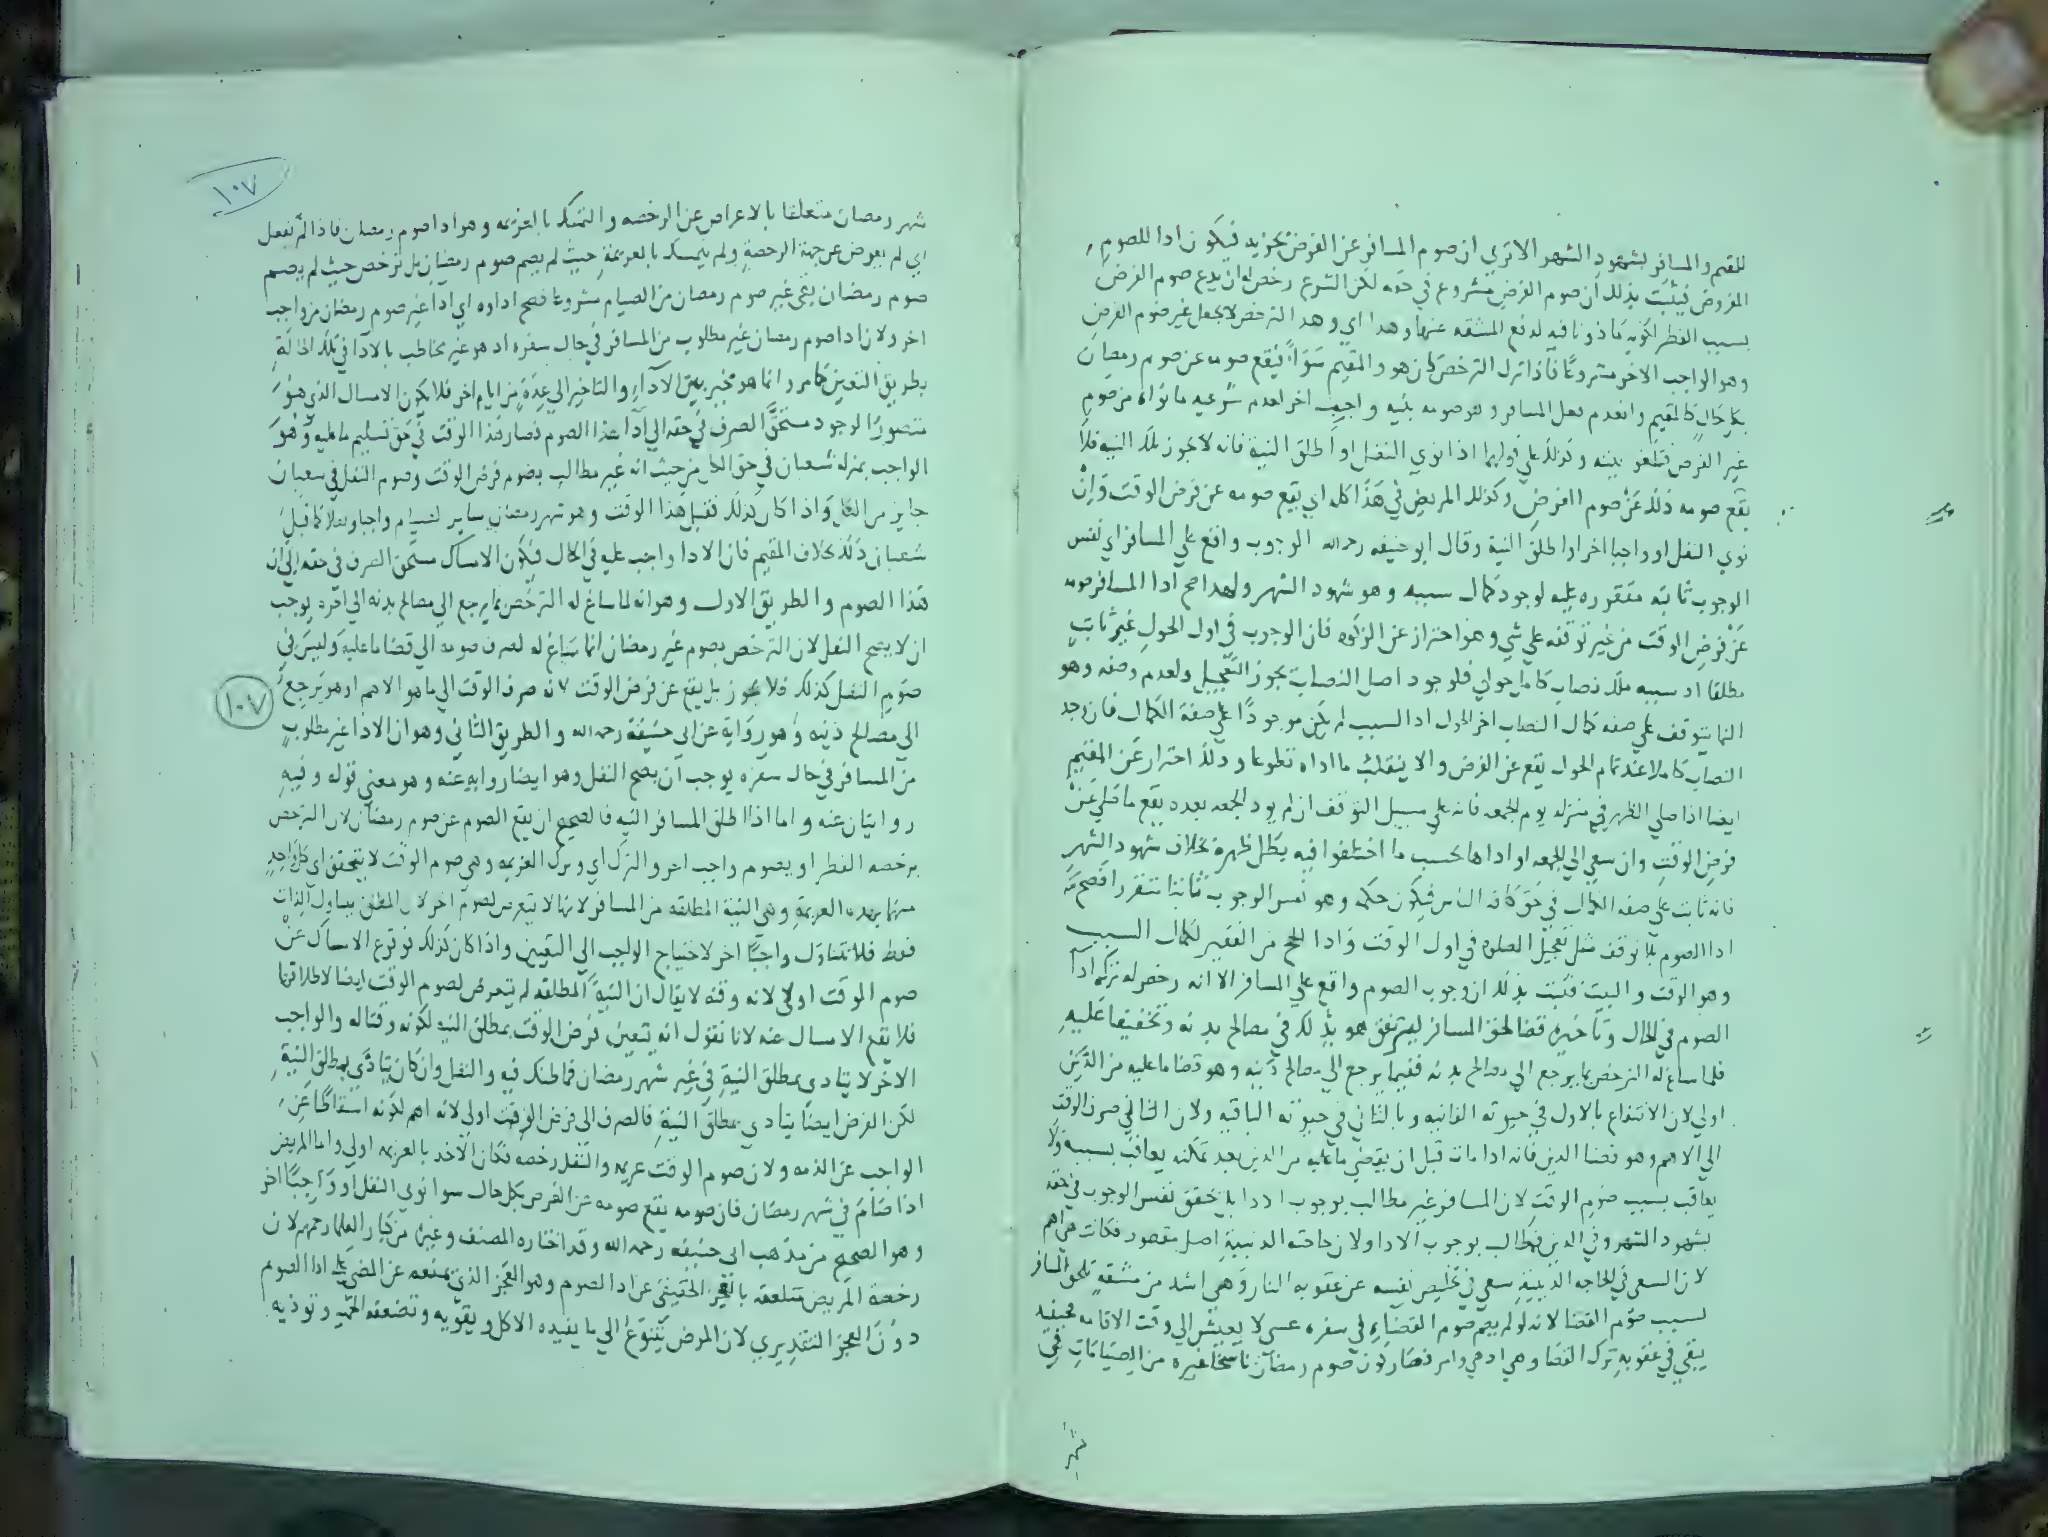 للمقيم والمسافر بشهود الشهر الا تري ان صوم المسافر عن الفرض يجزيه فيكون ادا للصوم
المفروض فيثبت بذلك ان صوم الفرض مشروع في حقه لكن الشرع رخص له ان يدع صوم الفرض
بسبب الفطر لكونه ماذونا فيه لدفع المشقه عنها وهذا اي وهذا الترخص لا يجعل غير صوم الفرض
وهو الواجب الاخر مشروعًا فاذا ترك الترخص كان هو والمقيم سَوَآءً فيقع صومه عن صوم رمضان
بكل حالٍ كالمقيم وانعدم فعل المسافر وهو صومه بنيه واجب اخر لعدم شرعيه ما نواه من صوم
غير الفرض فتلغو نيته وكذلك علي قولهما اذا نوي النفل او اطلق النية فانه لا يجوز بتلك النيه فلا
يقع صومه ذلك عَنْ صوم الفرض وكذلك المريض في هَذَا كله اي يقع صومه عن فرض الوقت وَاِنْ
نوي النفل او واجبا اخر او اطلق النية وقال ابو حنيفه رحمه الله الوجوب واقع علي المسافر اي نفس
الوجوب ثابته متقرره عليه لوجود كمال سببه وهو شهود الشهر ولهذا صح ادا المسافر صومه
عَنْ فرض الوقت من غير توقفه علي شي وهذا احتراز عن الزكوه فان الوجوب في اول الحول غير ثابتٍ
مطلقا اذ سببه ملك نصاب كامل حولي فلوجود اصل النصاب يجوز التعجيل ولعدم وصفه وهو
النما يتوقف علي صفه كمال النصاب اخر الحول اذ السبب لم يكن موجودًا علي صفة الكمال فان وجد
النصاب كاملا عند تمام الحول يقع عن الفرض والا ينقلب ما اداه تطوعا وذلك احتراز عن المقيم
ايضا اذا صلي الظهر في منزله يوم الجمعه فانه علي سبيل التوقف ان لم يود الجمعه بعده يقع ما صلي عَنْ
فرض الوقتِ وان سعي الي الجمعه او اداها بحسب ما اختلفوا فيه يبطل ظهره بخلاف شهود الشهر
فانه ثابت علي صفه الكمال في حق كافه الناس فيكون حكمه وهو نفس الوجوب ثابتا متقررا فصح منه
ادا الصوم بلا توقف مثل تعجيل الصلوه في اول الوقت وادا الحج من الفقير لكمال السبب
وهو الوقت والبيت فثبت بذلك ان وجوب الصوم واقع علي المسافر الا انه رخص له ترك ادآ
الصوم في الحال وتاخيره قضا لحق المسافر ليترفق هو بذلك في مصالح بدنه وتخفيفا عليهِ
فلما ساغ له الترخص بما يرجع الي مصالح بدنه ففيما يرجع الي مصالح دينه وهو قضا ما عليه من الدَّيْن
اولي لان الانتفاع بالاول في حيوته الفانيه وبالثاني في حيوته الباقيه ولان الثاني صرف الوقت
الي الاهم وهو قضا الدين فانه اذا مات قبل ان يقضي ما عليه من الدين بعد تمكنه يعاقب بسببه ولا
يعاقب بسبب صوم الوقت لان المسافر غير مطالب بوجوب الادا بل تحقق نفس الوجوب في حقه
بشهود الشهر وفي الدين مطالب بوجوب الادا ولان حاجته الدينية اصل مقصود فكانت هي اهم
لان السعي في الحاجه الدينيةِ سعي في تخليص نفسه عن عقوبه النار وهي اشد من مشقةٍ تلحق المسافر
بسبب صوم القضا لانه لو لم يصم صوم القضآءِ في سفره عسي لا يعيش الي وقت الاقامه فحينئذ
يبقي في عقوبه ترك القضا وهي ادهي وامر فصار كون صوم رمضان ناسخا غيره من الصيامات في
شهر
١٠٧
شهر رمضان متعلقا بالاعراض عن الرخصه والتمسك بالعزيمه وهو ادا صوم رمضان فاذا لم يفعل
اي لم يعرض عن جهة الرخصةِ ولم يتمسك بالعزيمةِ حيث لم يصم صوم رمضان بل ترخص حيث لم يصم
صوم رمضان بقي غير صوم رمضان من الصيام مشروعا فصح اداوه اي ادا غير صوم رمضان من واجب
اخر ولان ادا صوم رمضان غير مطلوب من المسافر في حال سفره اذ هو غير مخاطب بالادآ في تلك الحالةِ
بطريق التعيين كما مر وانما هو مخير بين الادآءِ والتاخير الي عِدةٍ من ايام اخر فلا يكون الامساك الذي هُوَ
متصورُ الوجود مستحقَّ الصرف في حقه الي ادآ هذا الصوم فصار هذا الوقت في حق تسليم ما عليه وهُوَ
الواجب بمنزله شعبان في حق الكل من حيث انه غير مطالب بصوم فرض الوقت وصوم النفل في شعبان
جايز من الكل وَاذا كان كذلك فقبل هذا الوقت وهو شهر رمضان ساير الصيام واجبا ونفلا كما قبل
شعبان ذلك بخلاف المقيم فان الادا واجب عليه في الحال فيكون الامساك مستحق الصرف في حقه الي ادا
هذا الصوم والطريق الاول وهو انه لما ساغ له الترخص بما يرجع الي مصالح بدنه الي اخره يوجب
ان لا يصح النفل لان الترخص بصوم غير رمضان انما ساغ له لصرف صومه الي قضا ما عليه وَليسَ في
صَوم النفل كذلك فلا يجوز بل يقع عن فرض الوقت لانه صرف الوقت الي ما هو الاهم اذ هو يرجعُ
الي مصالح دينه وهو رواية عن ابي حنيفة رحمه الله والطريق الثاني وهو ان الادا غير مطلوبٍ
من المسافر في حال سفره يوجب ان يصح النفل وهو ايضا روايه عنه وهو معني قوله وفيهِ
روايتان عنه واما اذا اطلق المسافر النيه فالصحيح ان يقع الصوم عن صوم رمضان لان الترخص
برخصه الفطر او بصوم واجب اخر والترك اي وترك العزيمه وهي صوم الوقت لا يتحقق اي كل واحدٍ
منهما بهذه العزيمةِ وهي النية المطلقه من المسافر لانها لا تتعرض لصوم اخر لان المطلق يتناول الذات
فقط فلا تتناول واجبًا اخر لاحتياج الواجب الي التعيين واذا كان كذلك فوقوع الامساك عَنْ
صوم الوقت اولي لانه وقته لا يقال ان النيةَ المطلقه لم تتعرض لصوم الوقت ايضا لاطلاقها
فلا يقع الامساك عنه لانا نقول انه يتعين فرض الوقت بمطلق النيه لكونه وقتا له والواجب
الاخر لا يتادي بمطلق النيةِ في غير شهر رمضان فما ظنك فيه والنفل وان كان يتادَّي بمطلق النيةِ
لكن الفرض ايضًا يتادي بمطلق النيةِ فالصرف الي فرض الوقت اولي لانه اهم لكونه اسقاطًا عَنِ
الواجب عن الذمه ولان صوم الوقت عزيمه والنفل رخصه فكان الاخذ بالعزيمه اولي واما المريض
اذا صَامَ في شهر رمضان فان صومه يقع صومه عن الفرض بكل حال سوا نوي النفل او وَاجبًا اخر
وهو الصحيح من مذهب ابي حنيفه رحمه الله وقد اختاره المصنف وغيره من كبار العلما رحمهم لان
رخصة المريض متعلقه بالعجز الحقيقي عن ادا الصوم وهو العجز الذي يمنعه عن المضي علي ادا الصوم
دونَ العجز التقديري لان المرض يَتَنوَّع الي ما يفيده الاكل ويقوّيه وتضعفه الحميه وتوذيه
١٠٧